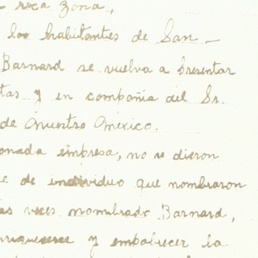 roca zona,
los habitantes de San_
Barnard se vuelva a presentar
tas y en compañia del Sr.
de nuestro México.
onada empresa, no se dieron
de individuo que nombraron
as veces nombrado Barnard,
y embalecer la